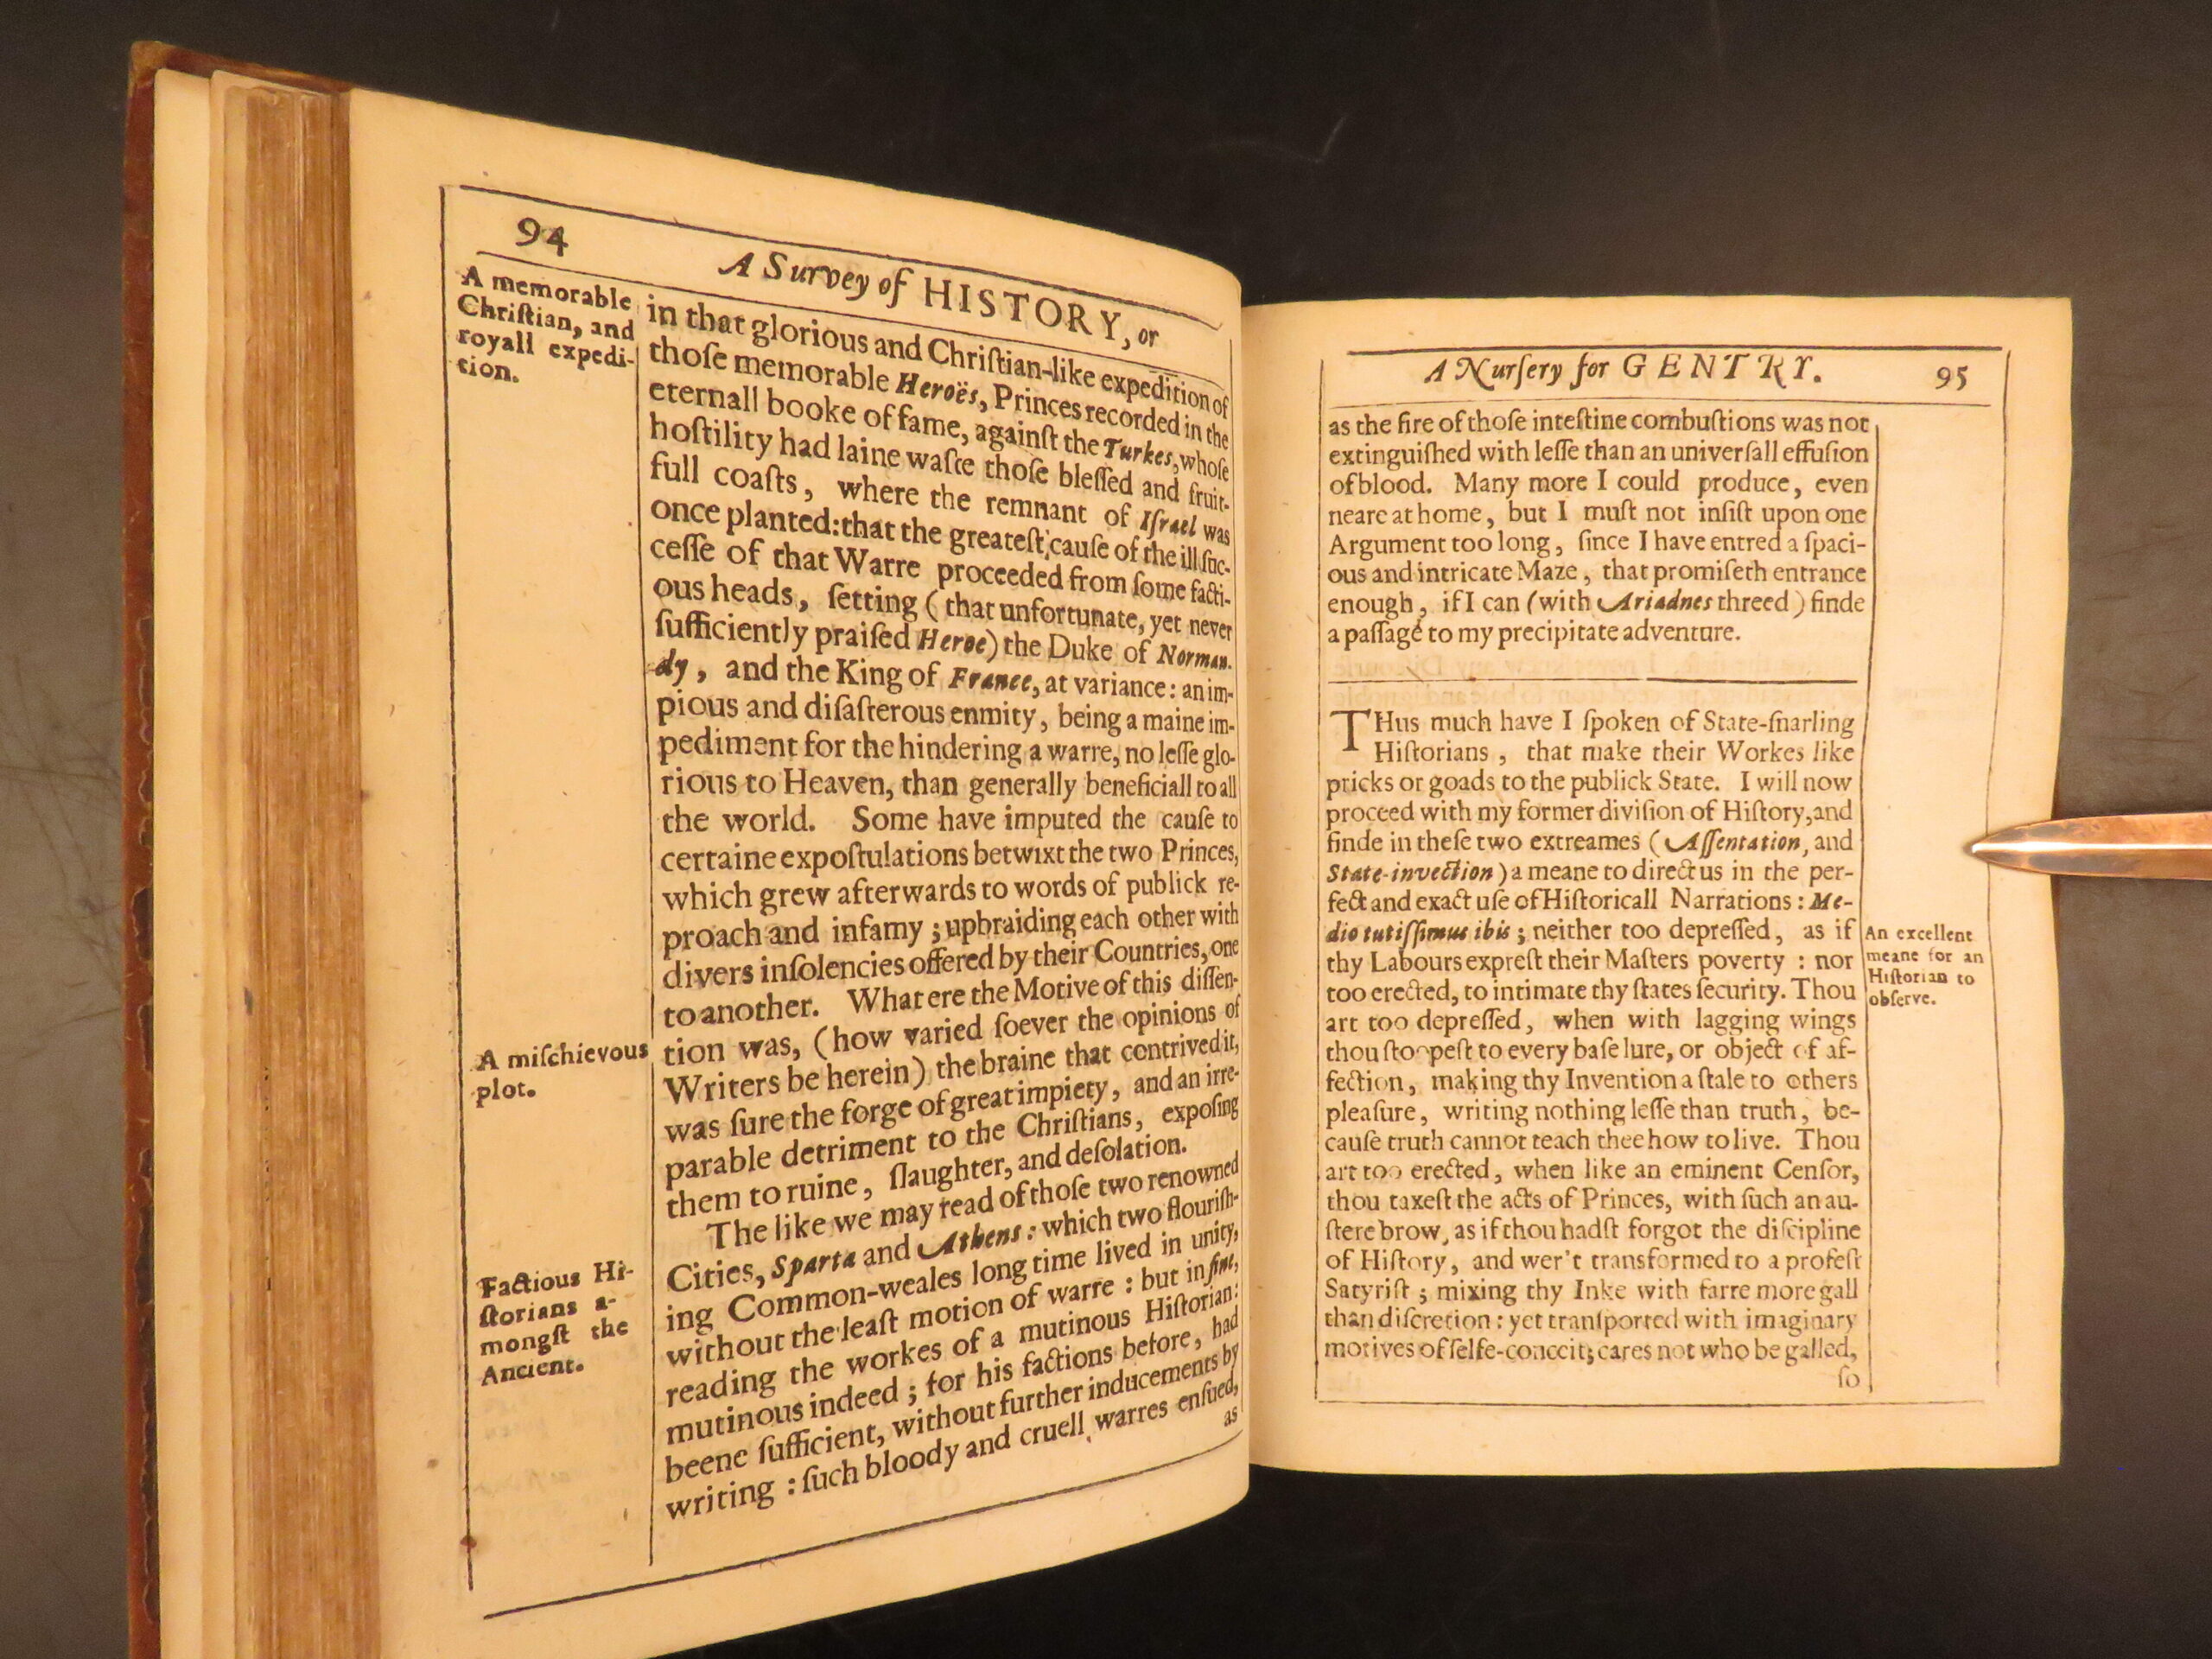 94
A Survey of HISTORY, or
A memorable
Chriſtian, and
royall expedi-
tion.
in that glorious and Chriſtian-like expedition of
thoſe memorable Heroës, Princes recorded in the
eternall booke of fame, againſt the Turkes, whoſe
hoſtility had laine waſte thoſe bleſſed and fruit-
full coaſts, where the remnant of Iſrael was
once planted: that the greateſt cauſe of the ill ſuc-
ceſſe of that Warre proceeded from ſome facti-
ous heads, ſetting (that unfortunate, yet never
ſufficiently praiſed Heroe) the Duke of Norman-
dy, and the King of France, at variance: an im-
pious and diſaſterous enmity, being a maine im-
pediment for the hindering a warre, no leſſe glo-
rious to Heaven, than generally beneficiall to all
the world. Some have imputed the cauſe to
certaine expoſtulations betwixt the two Princes,
which grew afterwards to words of publick re-
proach and infamy; upbraiding each other with
divers inſolencies offered by their Countries, one
to another. What ere the Motive of this diſſen-
tion was, (how varied ſoever the opinions of
Writers be herein) the braine that contrived it,
was ſure the forge of great impiety, and an irre-
parable detriment to the Chriſtians, expoſing
them to ruine, ſlaughter, and deſolation.
A miſchievous
plot.
The like we may read of thoſe two renowned
Cities, Sparta and Athens: which two flouriſh-
ing Common-weales long time lived in unity,
without the leaſt motion of warre: but in fine,
reading the workes of a mutinous Hiſtorian:
mutinous indeed; for his factions before, had
beene ſufficient, without further inducements by
writing: ſuch bloody and cruell warres enſued,
as
Factious Hi-
ſtorians a-
mongſt the
Ancient.
A Nurſery for GENTRY.
95
as the fire of thoſe inteſtine combuſtions was not
extinguiſhed with leſſe than an univerſall effuſion
of blood. Many more I could produce, even
neare at home, but I muſt not inſiſt upon one
Argument too long, ſince I have entred a ſpaci-
ous and intricate Maze, that promiſeth entrance
enough, if I can (with Ariadnes threed) finde
a paſſage to my precipitate adventure.
THus much have I ſpoken of State-ſnarling
Hiſtorians, that make their Workes like
pricks or goads to the publick State. I will now
proceed with my former diviſion of Hiſtory, and
finde in theſe two extreames (Aſſentation, and
State-invection) a meane to direct us in the per-
fect and exact uſe of Hiſtoricall Narrations: Me-
dio tutiſſimus ibis; neither too depreſſed, as if
thy Labours expreſt their Maſters poverty: nor
too erected, to intimate thy ſtates ſecurity. Thou
art too depreſſed, when with lagging wings
thou ſtoopeſt to every baſe lure, or object of af-
fection, making thy Invention a ſtale to others
pleaſure, writing nothing leſſe than truth, be-
cauſe truth cannot teach thee how to live. Thou
art too erected, when like an eminent Cenſor,
thou taxeſt the acts of Princes, with ſuch an au-
ſtere brow, as if thou hadſt forgot the diſcipline
of Hiſtory, and wer't transformed to a profeſt
Satyriſt; mixing thy Inke with farre more gall
than diſcretion: yet tranſported with imaginary
motives of ſelfe-conceit; cares not who be galled,
ſo
An excellent
meane for an
Hiſtorian to
obſerve.